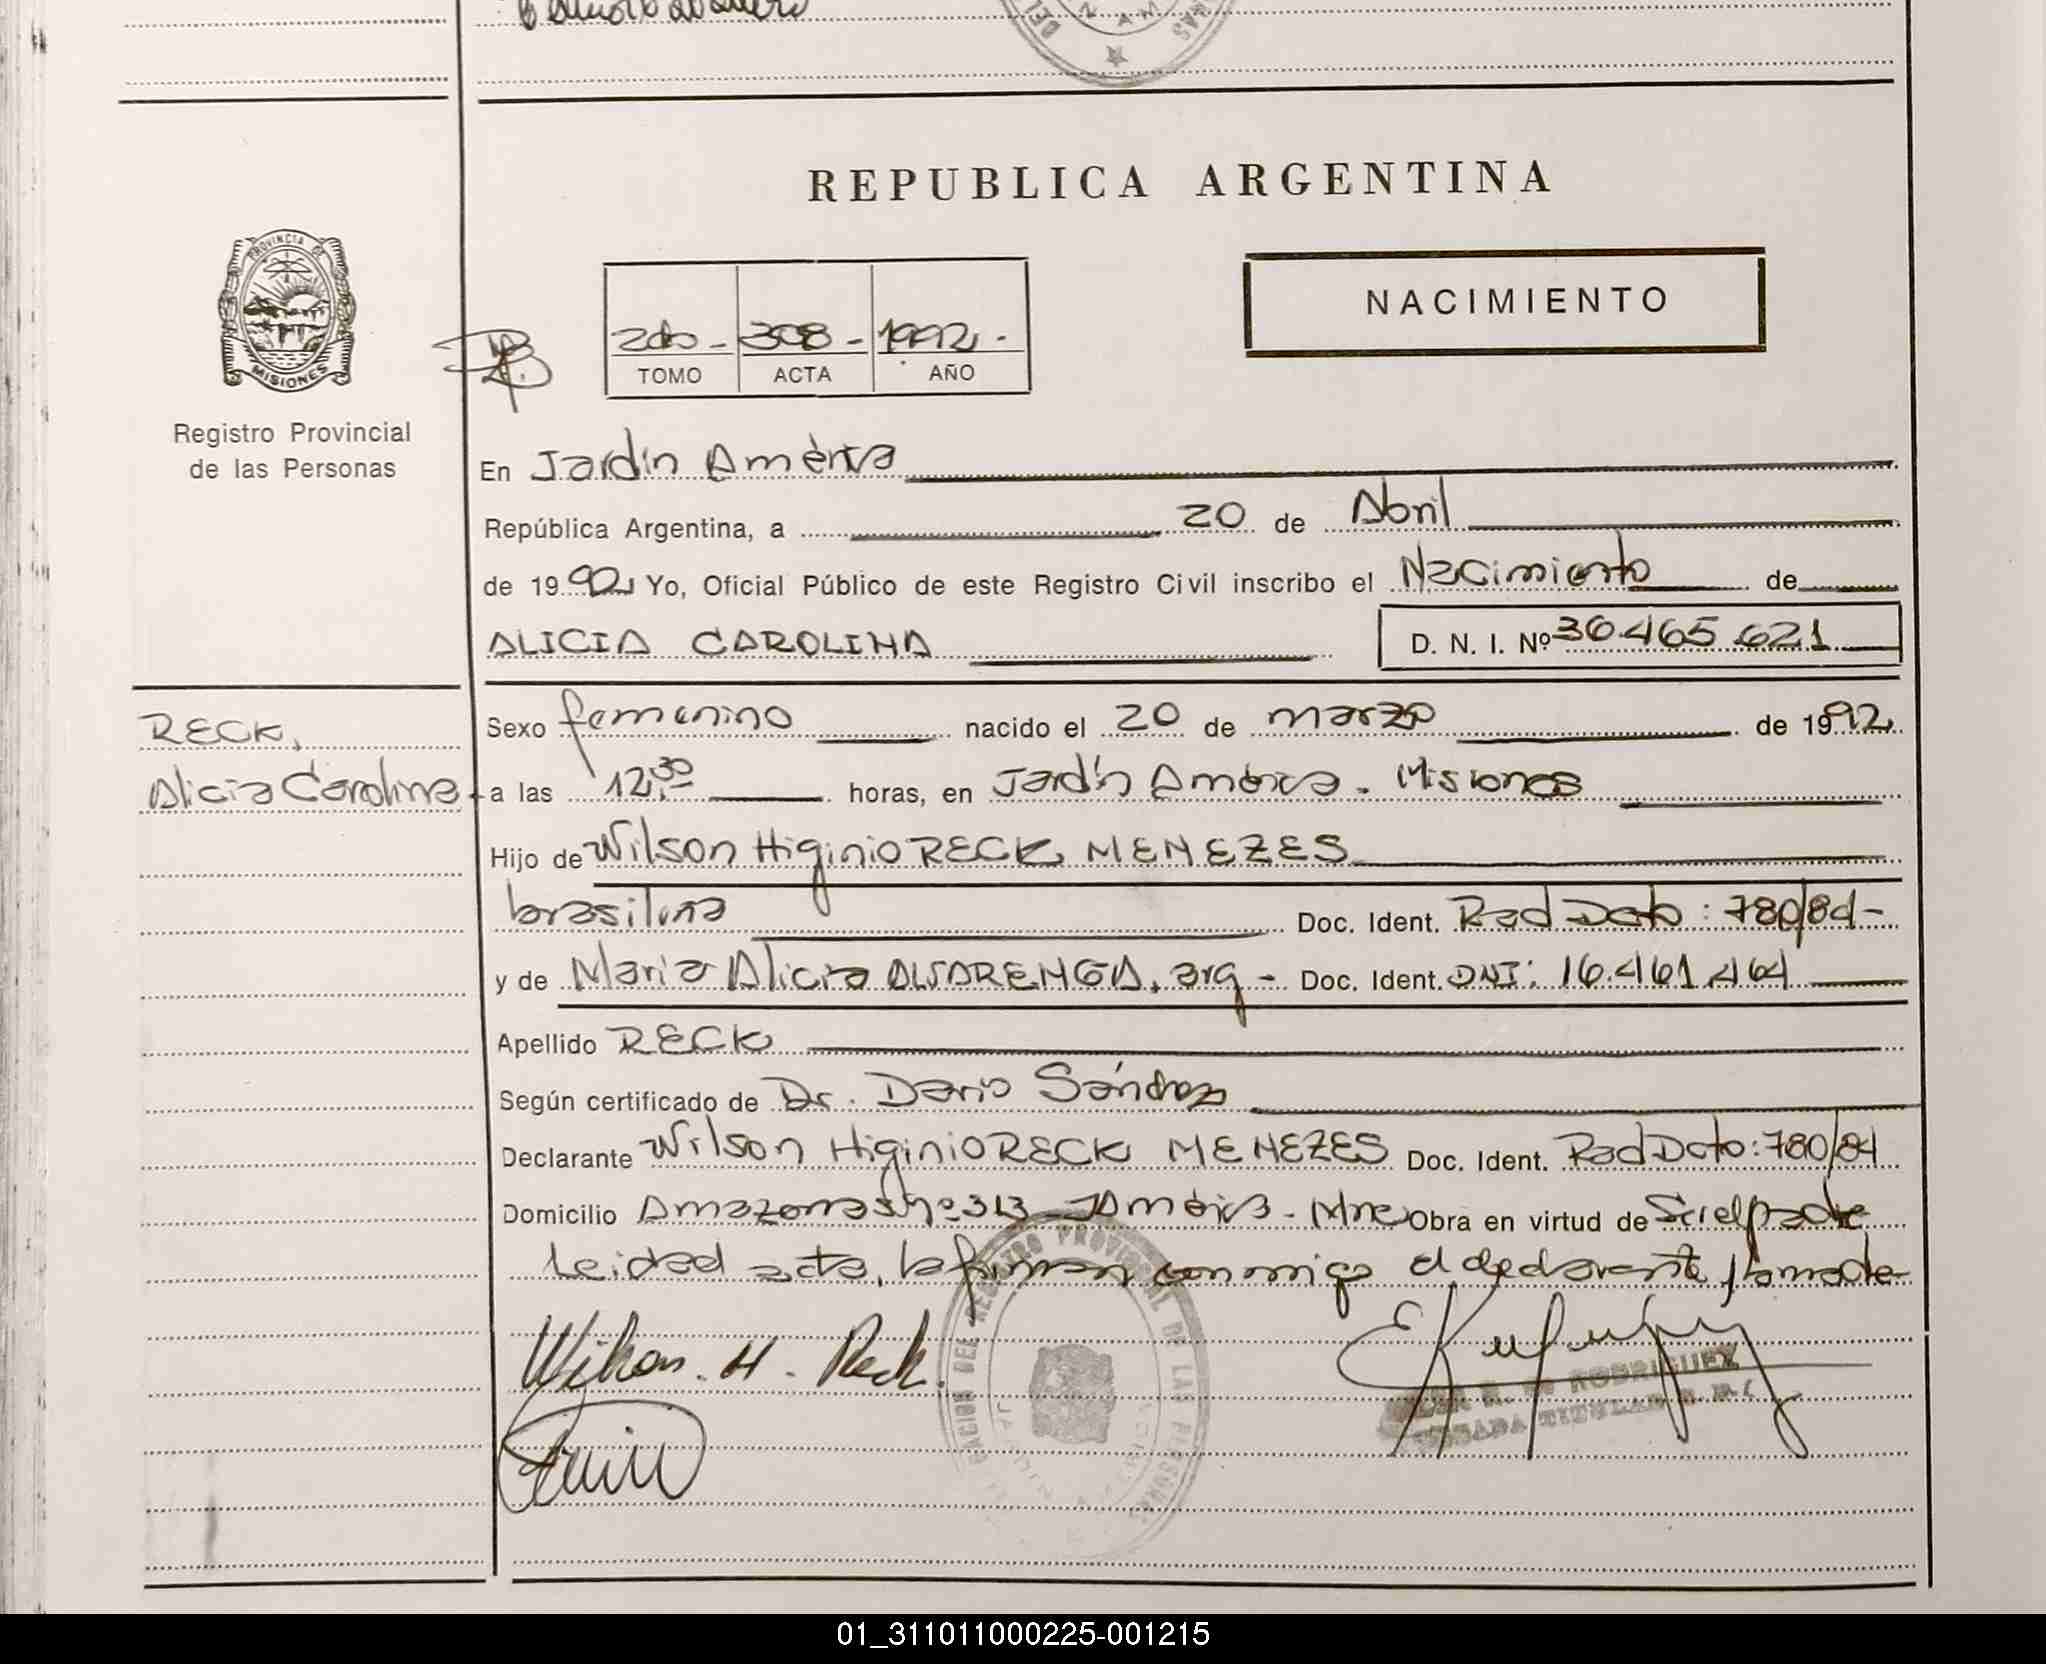 REPUBLICA ARGENTINA
NACIMIENTO
PROVINCIA DE
MISIONES
Registro Provincial
de las Personas
2do - 308 - 1992 -
TOMO ACTA AÑO
En Jardín América
República Argentina, a 20 de Abril
de 1992 Yo, Oficial Público de este Registro Civil inscribo el Nacimiento de
ALICIA CAROLINA D. N. I. Nº 36.465.621
RECK,
Alicia Carolina
Sexo femenino nacido el 20 de marzo de 1992
a las 12,30 horas, en Jardín América - Misiones
Hijo de Wilson Higinio RECK MENEZES
brasileña Doc. Ident. Rad Dcto: 780/84-
y de Maria Alicia ALVARENGA, arg - Doc. Ident. DNI: 16.461.464
Apellido RECK
Según certificado de Dr. Dario Sánchez
Declarante Wilson Higinio RECK MENEZES Doc. Ident. Rad Dcto: 780/84
Domicilio Amazonas nº 313 - J América - Mnes Obra en virtud de Ser el padre
Leida el acta, la firman conmigo el declarante y la madre
Wilson. H. Reck.
DEL REGISTRO PROVINCIAL DE LAS PERSONAS
RODRIGUEZ
01_311011000225-001215